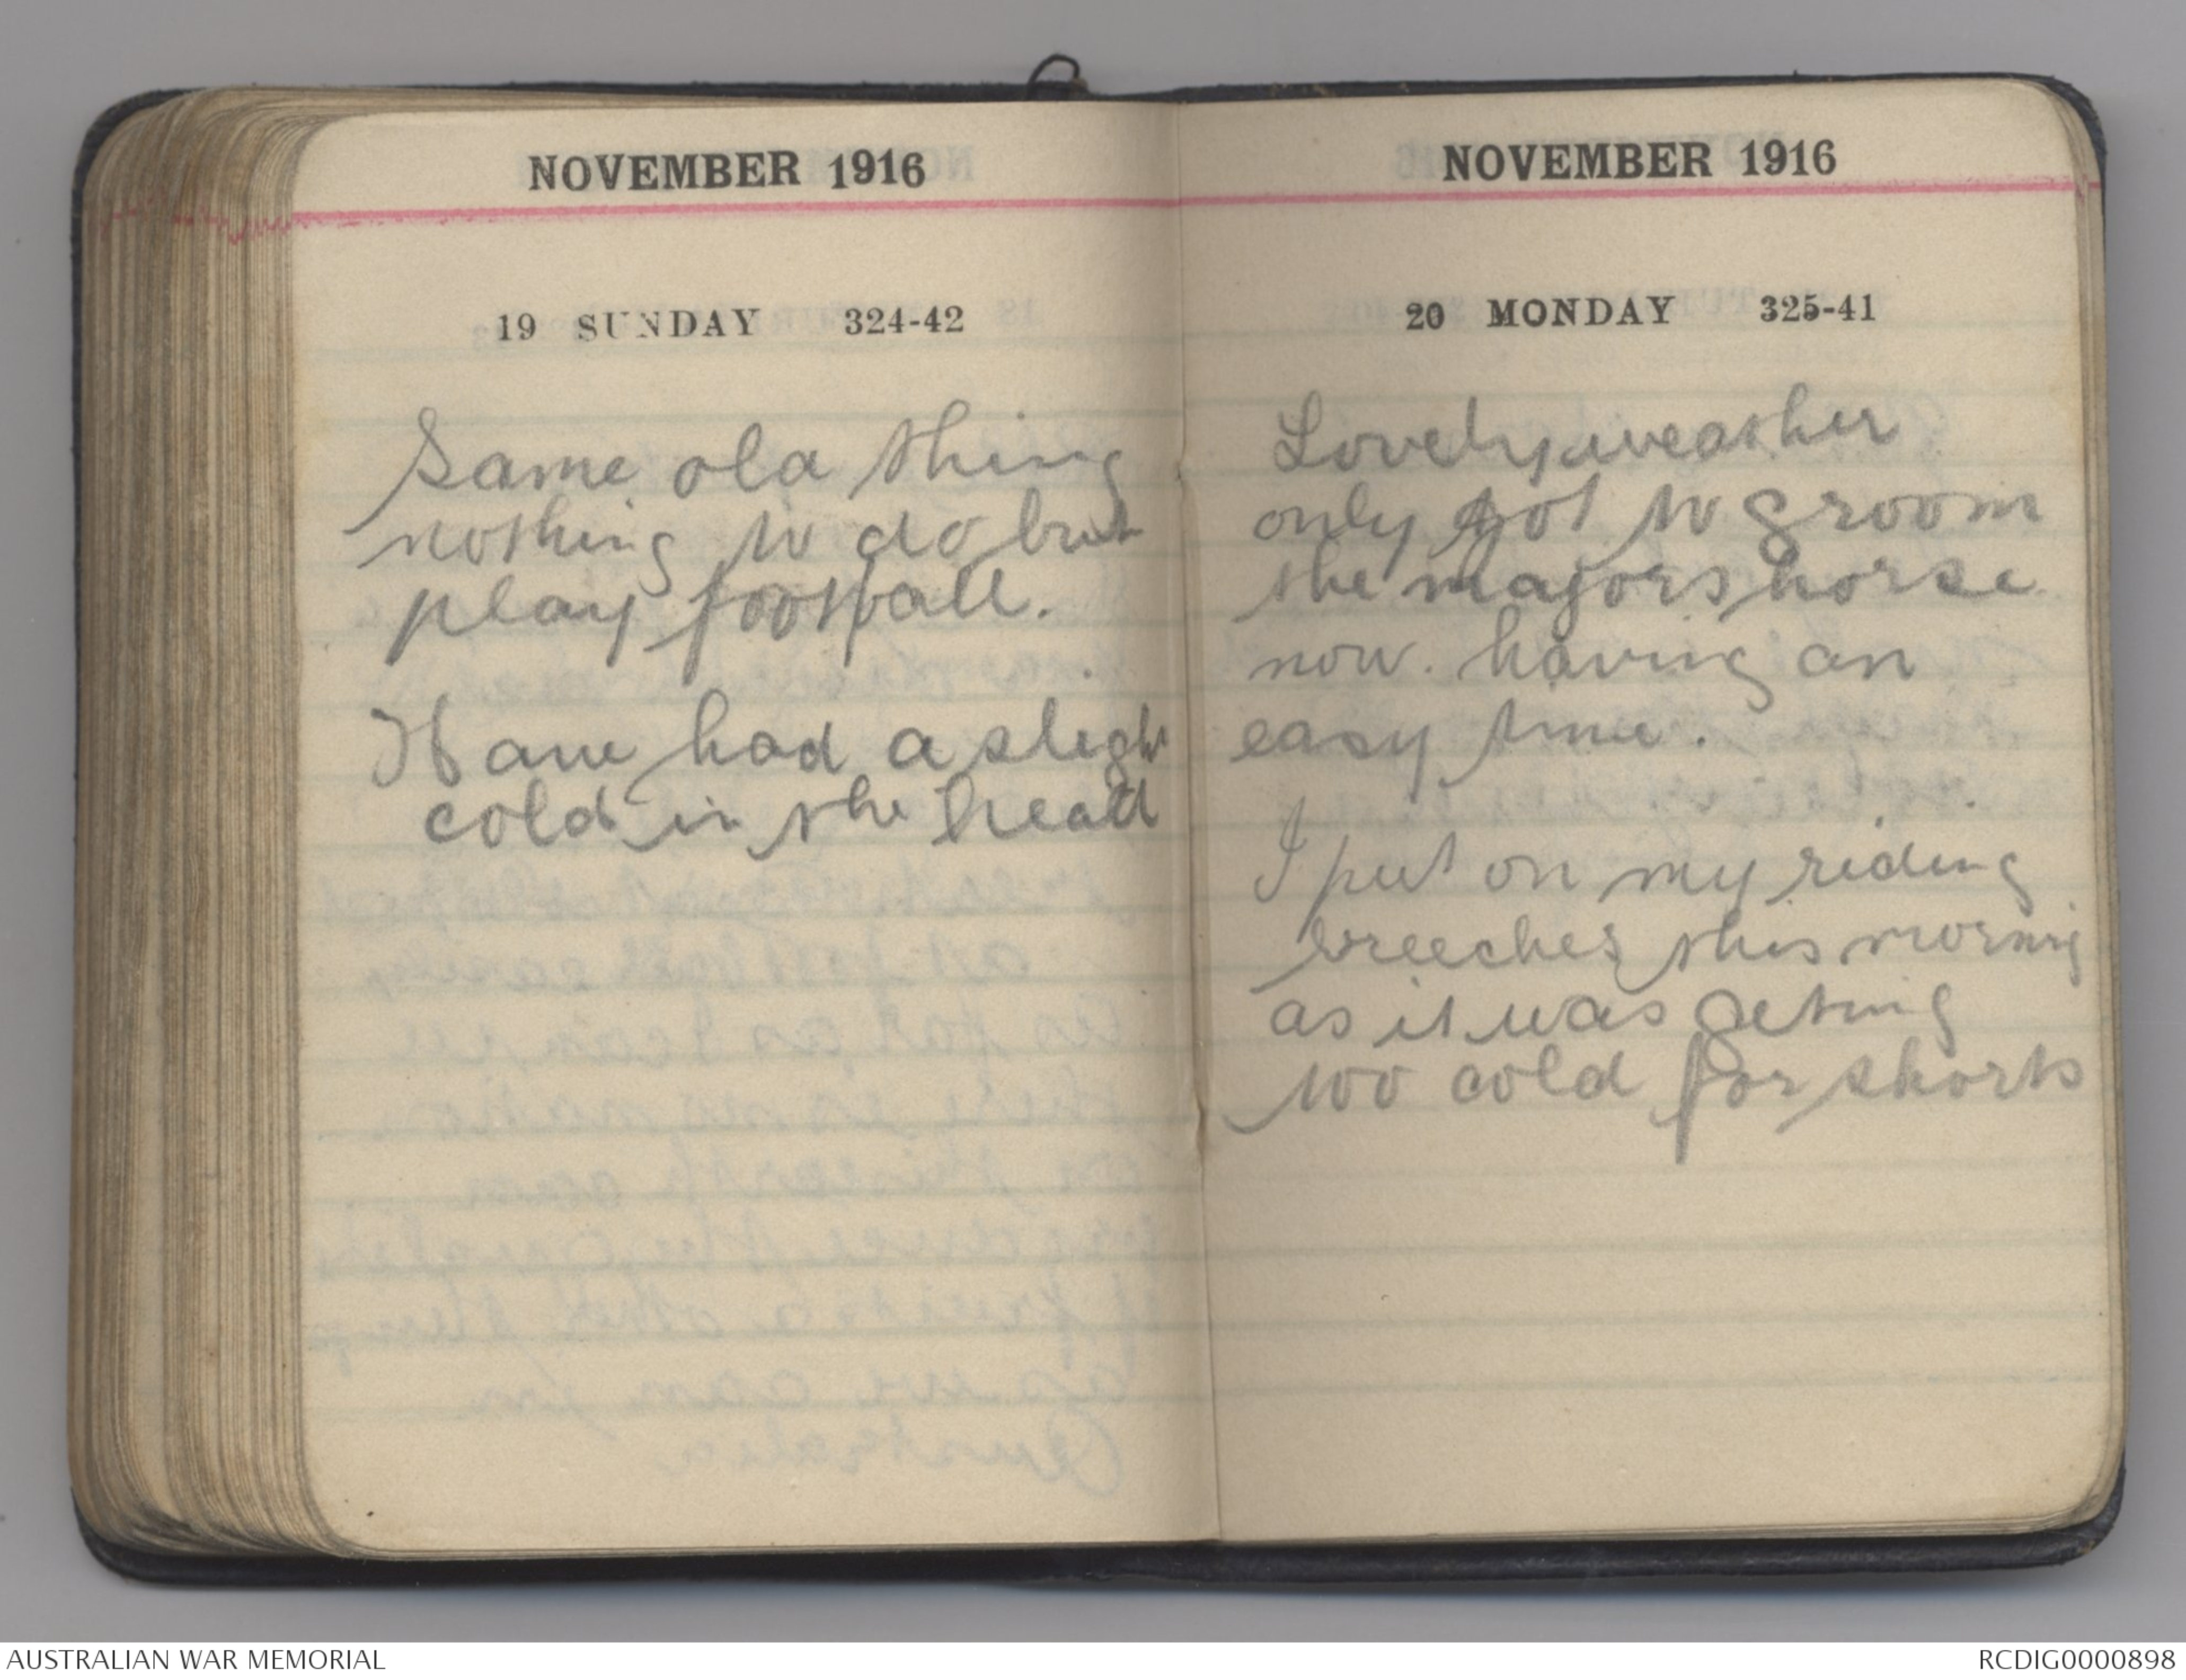 NOVEMBER 1916
19 SUNDAY 324-42
Same old thing
nothing to do but
play football.
Have had a sligh
cold in the head
NOVEMBER 1916
20 MONDAY 325-41
Lovely weather
only got to groom
the majors horse
now. having an
easy time.
I put on my riding
breeches this morning
as it was geting
too cold for shorts
AUSTRALIAN WAR MEMORIAL
RCDIG0000898